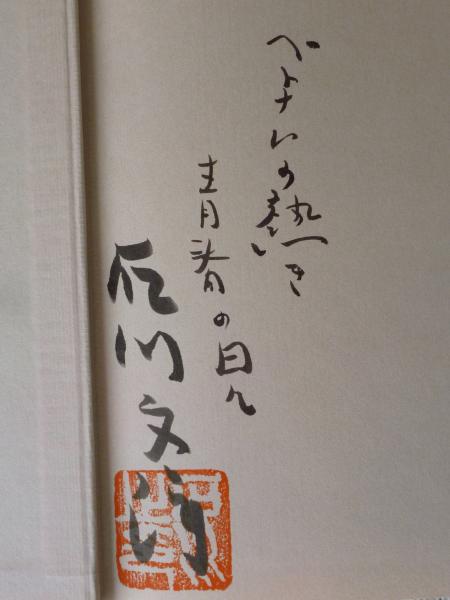 ベトナムの熱き
青春の日々
石川文洋